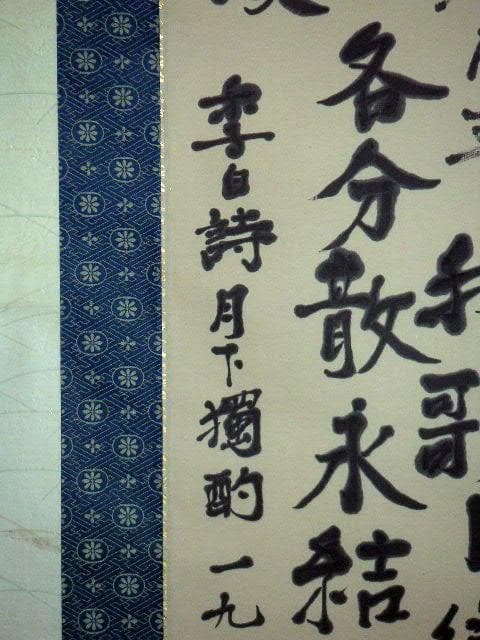 各分散永結
李白詩月下獨酌一九